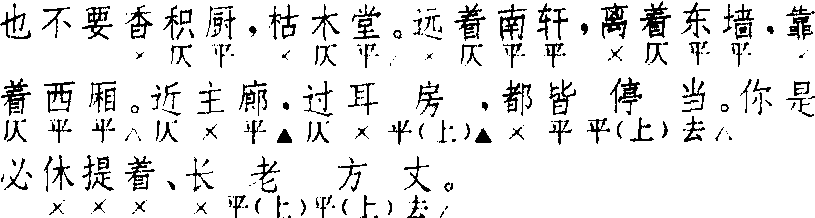 也不要香积厨,枯木堂。远着南轩,离着东墙,靠
× 仄 平 × 仄 平 × 仄 平 平 × 仄 平 平
着西厢。近主廊,过耳房,都皆停当。你是
仄 平 平△仄 × 平▲仄 × 平(上)▲ × 平 平(上)去△
必休提着、长老方丈。
× × × × 平(上)平(上)去